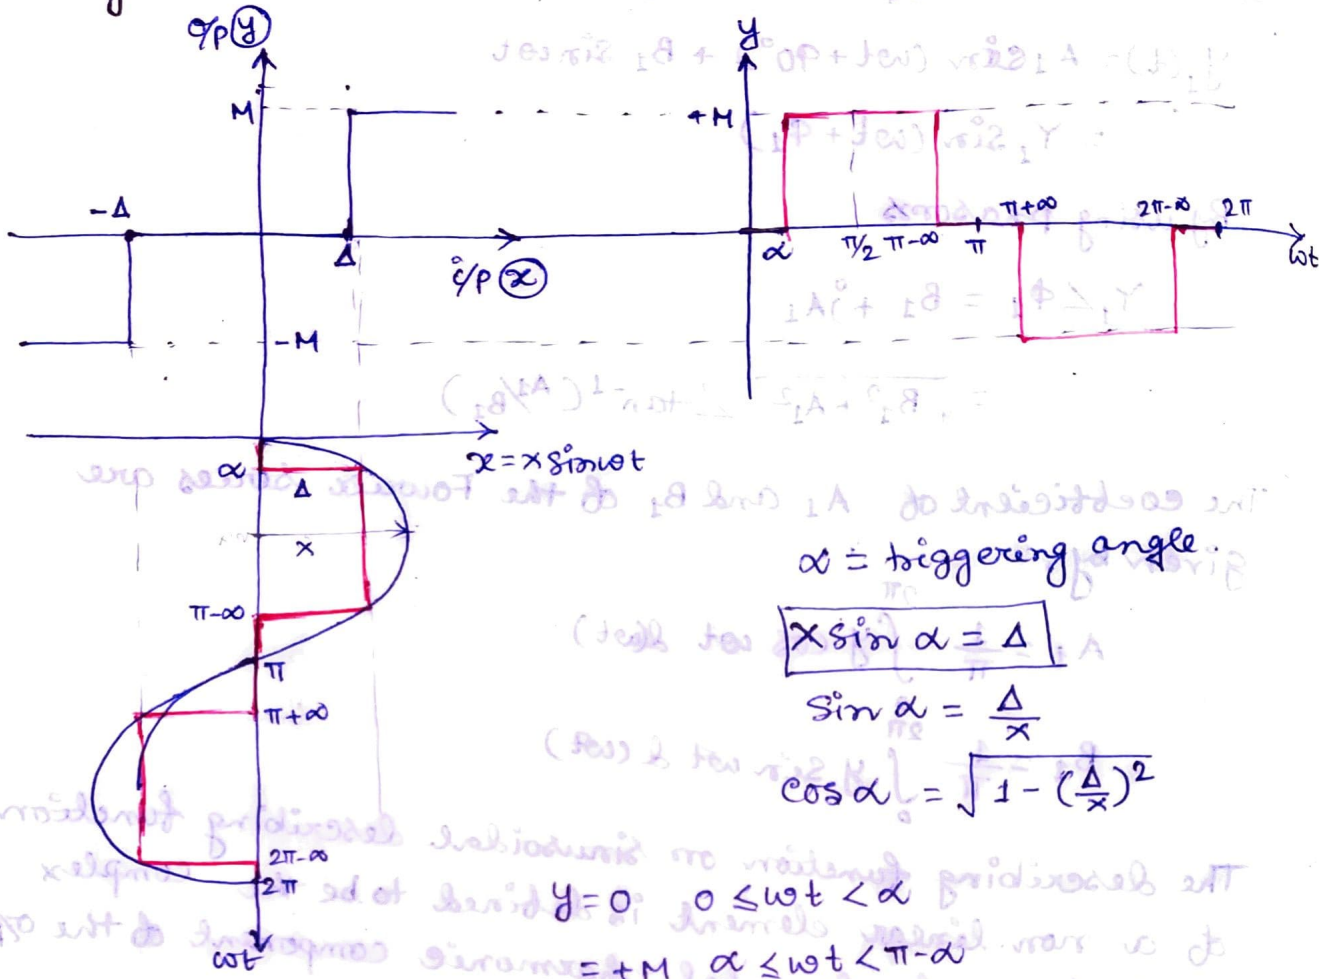 o/p y
M
-Δ
Δ
i/p x
-M
y
+M
α
π/2
π-α
π
π+α
2π-α
2π
ωt
x = X sinωt
α
Δ
X
π-α
π
π+α
2π-α
2π
ωt
α = triggering angle.
X sin α = Δ
Sin α = Δ/X
cos α = √1 - (Δ/X)²
y = 0 0 ≤ ωt < α
= +M α ≤ ωt < π-α